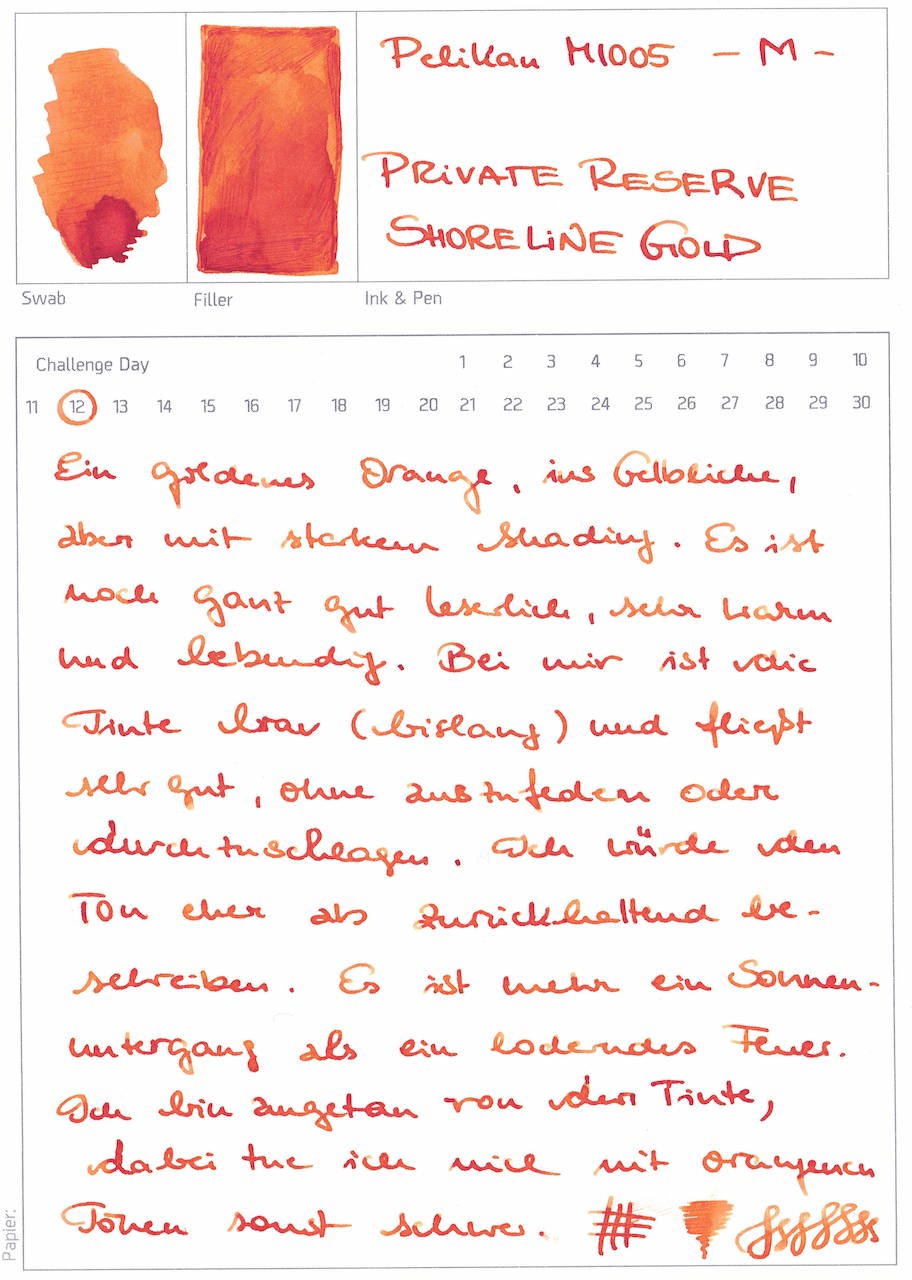 Pelikan M1005 - M -
PRiVATE RESERVE
SHORELiNE GOLD
Swab Filler Ink & Pen
Challenge Day 1 2 3 4 5 6 7 8 9 10
11 12 13 14 15 16 17 18 19 20 21 22 23 24 25 26 27 28 29 30
Ein goldenes Orange, ins Gelbliche,
aber mit starkem Shading. Es ist
noch ganz gut leserlich, sehr warm
und lebendig. Bei mir ist die
Tinte brav (bislang) und fließt
sehr gut, ohne auszufedern oder
durchzuschlagen. Ich würde den
Ton eher als zurückhaltend be-
schreiben. Es ist mehr ein Sonnen-
untergang als ein loderndes Feuer.
Ich bin angetan von der Tinte,
dabei tue ich mich mit orangenen
Tönen sonst schwer.
Papier: